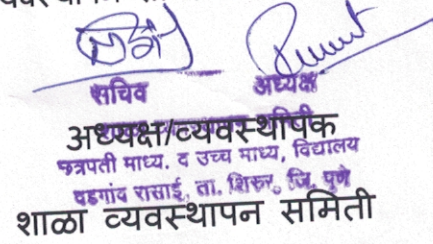 सचिव अध्यक्ष
अध्यक्ष/व्यवस्थापक
छत्रपती माध्य. व उच्च माध्य, विद्यालय
वडगांव रासाई, ता. शिरुर, जि. पुणे
शाळा व्यवस्थापन समिती